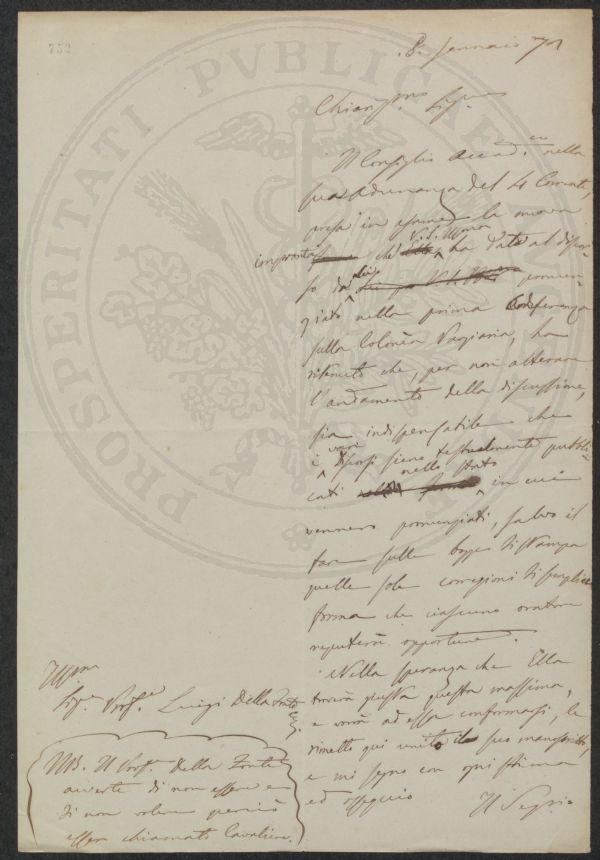 752
8. Gennaio 71
Chiarmo. Sigre.
Il Consiglio Accad.co nella
sua Adunanza del 4 Corrente,
presa in esame la nuova
impronta che V. S. Illma ha data al discor-
so da Lei pronun-
ziato nella prima Conferenza
sulla Colonìa Parziaria, ha
ritenuto che, per non alterare
l'andamento della discussione,
sia indispensabile che
i vari discorsi sieno testualmente pubbli-
cati nello stato in cui
vennero pronunziati, salvo il
fare sulle bozze di stampa
quelle sole correzioni di semplice
forma che ciascuno oratore
reputerà opportune.
Nella speranza che Ella
troverà giusta questa massima,
e vorrà ad essa conformarsi, le
rimetto qui unito il suo manoscritto,
e mi segno con ogni stima
ed ossequio
Il Segrio.
Illmo
Sigre. Profe. Luigi Della Fonte
NB. Il Prof. Della Fonte
avverte di non essere e
di non volere perciò
esser chiamato Cavaliere.
PROSPERITATI PVBLICAE